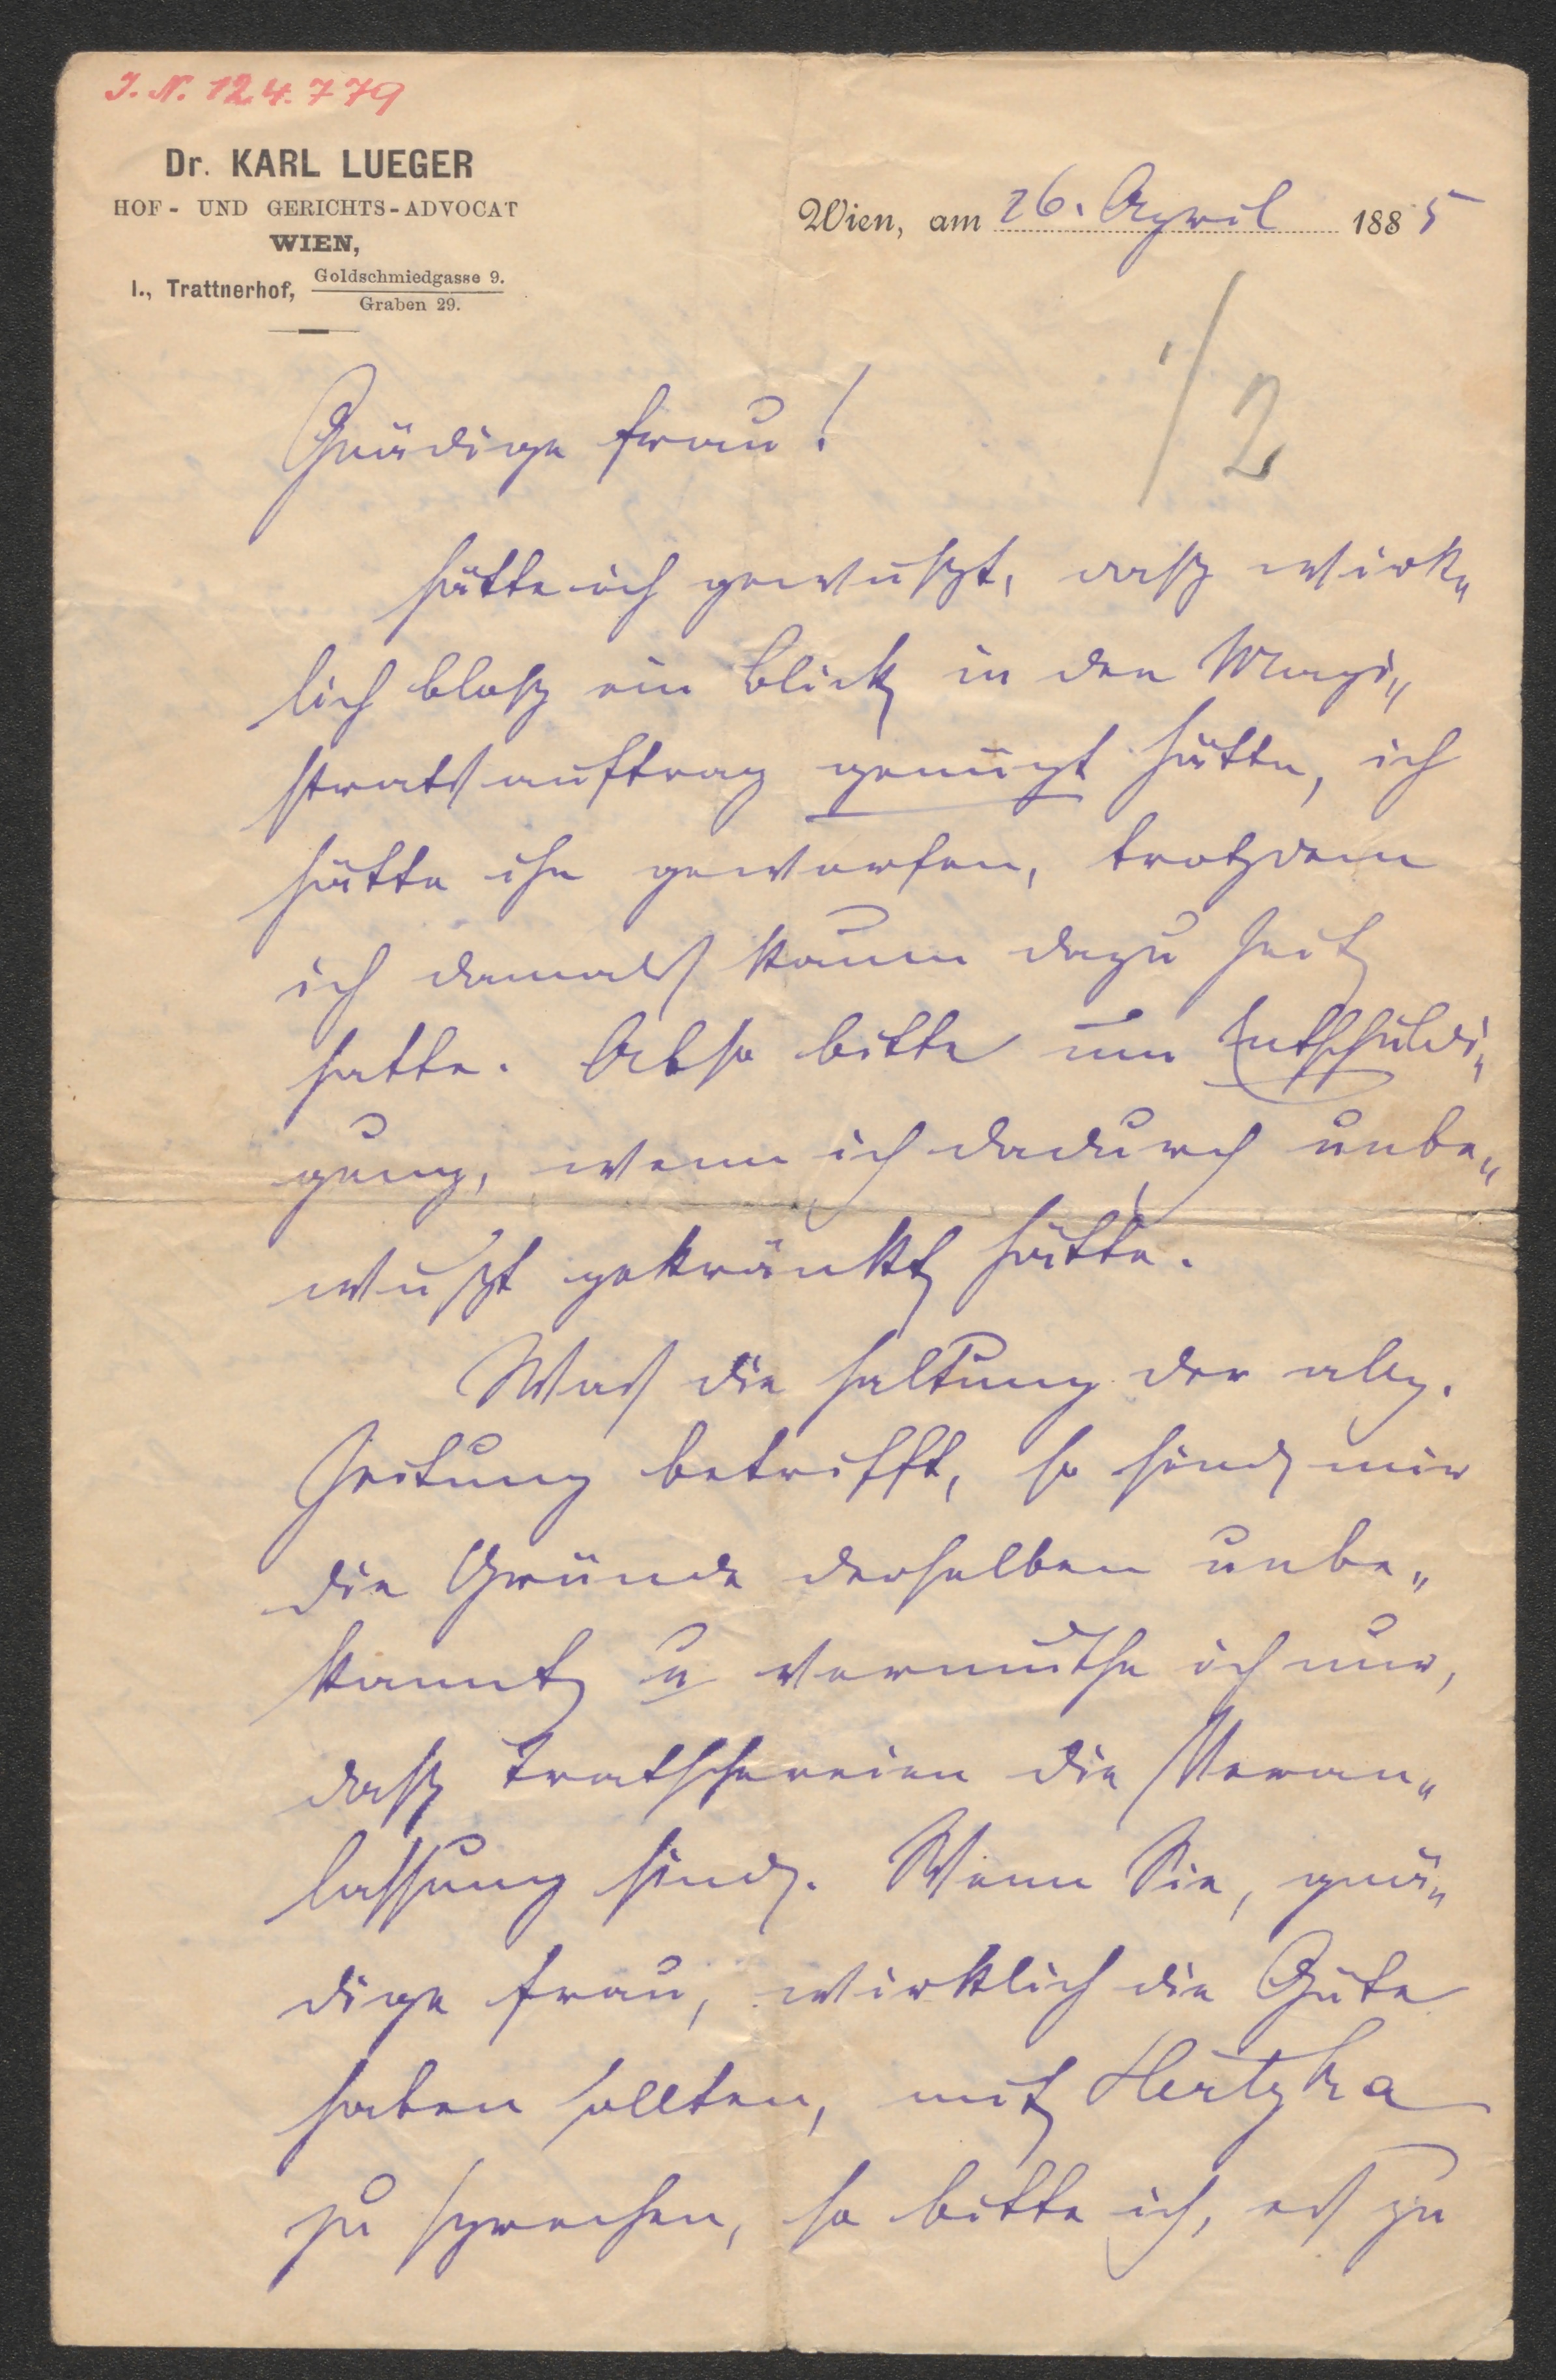 I. N. 124.779
Dr. KARL LUEGER
HOF- UND GERICHTS-ADVOCAT
WIEN,
I., Trattnerhof, Goldschmiedgasse 9.
Graben 29.
Wien, am 26. April 1885
1/2
Gnädige Frau!
Hätte ich gewußt, daß wirk„
lich bloß ein Blick in den Magi„
stratsauftrag genügt hätte, ich
hätte ihn geworfen, trotzdem
ich damals kaum dazu Zeit
hatte. Also bitte um Entschuldi„
gung, wenn ich dadurch unbe„
wußt gekränkt hätte.
Was die Haltung der allg.
Zeitung betrifft, so sind mir
die Gründe derselben unbe„
kannt u vermuthe ich nur,
daß Tratschereien die Veran„
lassung sind. Wenn Sie, gnä„
dige Frau, wirklich die Güte
haben sollten, mit Hertzka
zu sprechen, so bitte ich, es zu